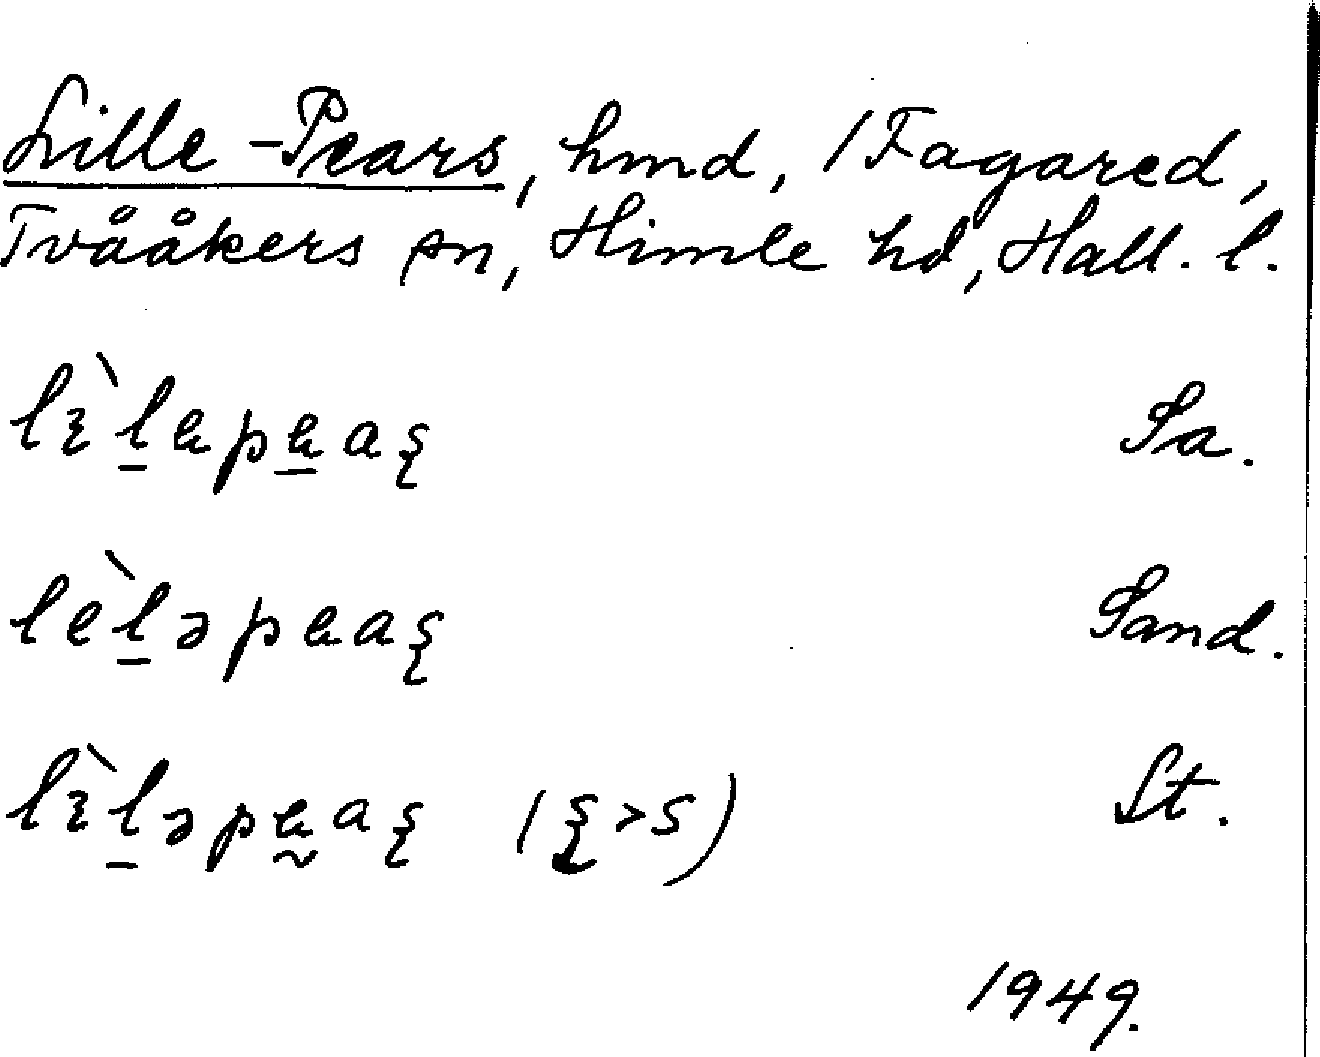 Lille-Pears, hmd, /Fagared,
Tvååkers sn, Himle hd, Hall. l.
lɪ̀l̲əpa̲aʂ Sa.
lèl̲əpaaʂ Sand.
lɪ̀l̲əpa̰aʂ (ʂ>s) St.
1949.